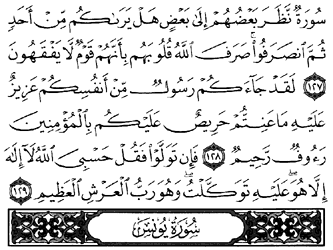 سُورَةٌ نَّظَرَ بَعْضُهُمْ إِلَىٰ بَعْضٍ هَلْ يَرَىٰكُم مِّنْ أَحَدٍ
ثُمَّ ٱنصَرَفُوا۟ صَرَفَ ٱللَّهُ قُلُوبَهُم بِأَنَّهُمْ قَوْمٌ لَّا يَفْقَهُونَ
١٢٧ لَقَدْ جَآءَكُمْ رَسُولٌ مِّنْ أَنفُسِكُمْ عَزِيزٌ
عَلَيْهِ مَا عَنِتُّمْ حَرِيصٌ عَلَيْكُم بِٱلْمُؤْمِنِينَ
رَءُوفٌ رَّحِيمٌ ١٢٨ فَإِن تَوَلَّوْا۟ فَقُلْ حَسْبِىَ ٱللَّهُ لَآ إِلَٰهَ
إِلَّا هُوَ عَلَيْهِ تَوَكَّلْتُ وَهُوَ رَبُّ ٱلْعَرْشِ ٱلْعَظِيمِ ١٢٩
سُورَةُ يُونُسَ